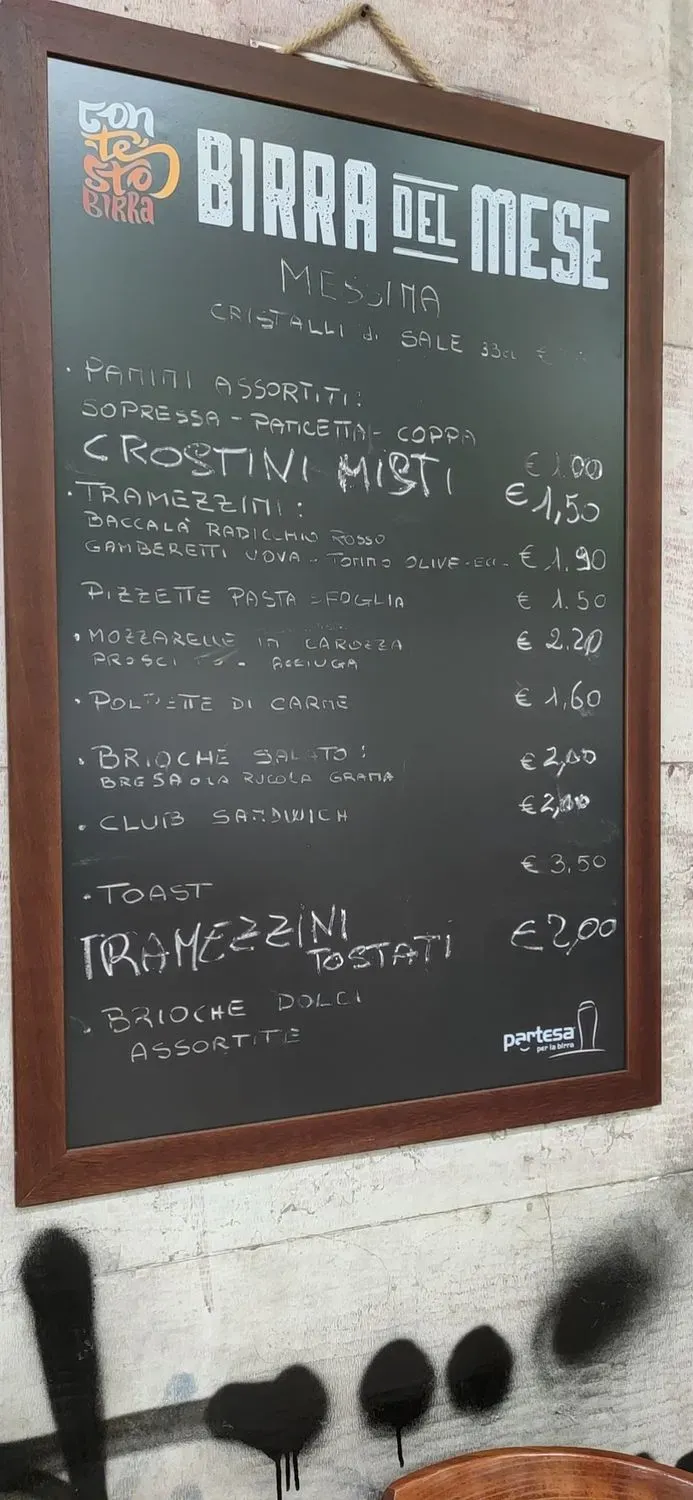 con
te
sto
BIRRA
BIRRA DEL MESE
MESSINA
CRISTALLI di SALE 33cl €
· PANINI ASSORTITI:
SOPRESSA - PANCETTA - COPPA € 1.00
CROSTINI MISTI € 1,50
· TRAMEZZINI:
BACCALÀ RADICCHIO ROSSO
GAMBERETTI UOVA - TONNO OLIVE - € 1.90
PIZZETTE PASTA SFOGLIA € 1.50
· MOZZARELLE IN CAROZZA € 2.20
PROSCI TO - ACCIUGA
· POLPETTE DI CARNE € 1,60
· BRIOCHÈ SALATO: € 2,00
BRESAOLA RUCOLA GRANA
· CLUB SANDWICH € 2,00
· TOAST € 3,50
TRAMEZZINI
TOSTATI € 2,00
· BRIOCHE DOLCI
ASSORTITE
partesa
per la birra